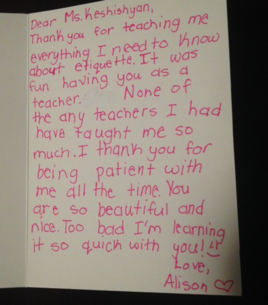 Dear Ms. Keshishyan,
Thank you for teaching me
everything I need to know
about etiquette. It was
fun having you as a
teacher. None of
the any teachers I had
have taught me so
much. I thank you for
being patient with
me all the time. You
are so beautiful and
nice. Too bad I'm learning
it so quick with you!
Love,
Alison